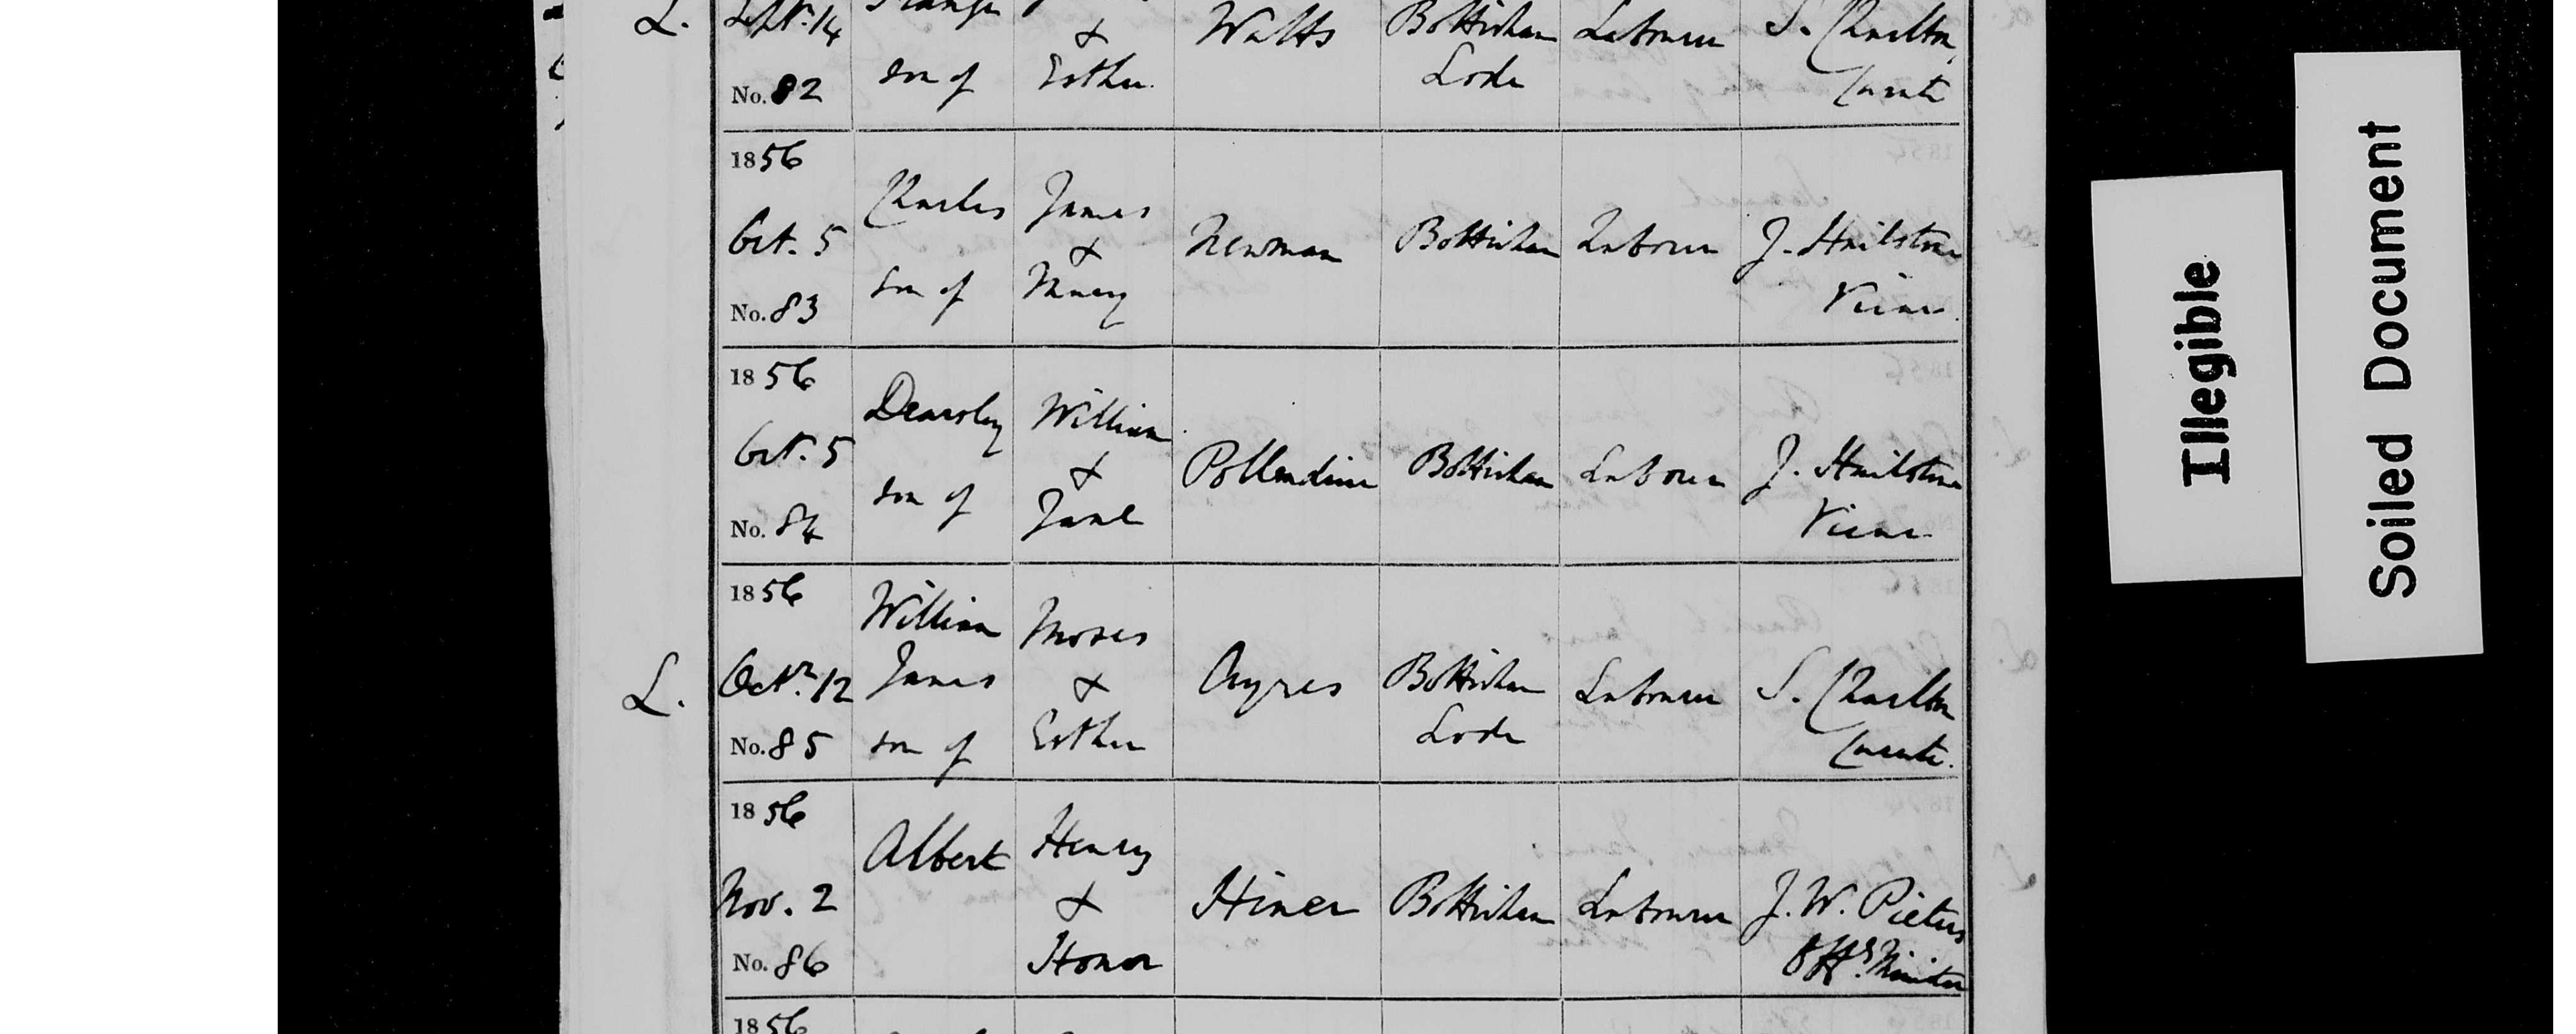 L.
Sept. 14
No. 82
son of
&
Esther
Watts
Bottisham
Lode
Labourer
S. Charlton
Curate
1856
Oct. 5
No. 83
Charles
son of
James
&
Mary
Newman
Bottisham
Labourer
J. Hailstone
Vicar
1856
Oct. 5
No. 84
Dearsley
son of
William
&
Jane
Pollendine
Bottisham
Labourer
J. Hailstone
Vicar
L.
1856
Octr. 12
No. 85
William
James
son of
Moses
&
Esther
Ayres
Bottisham
Lode
Labourer
S. Charlton
Curate.
1856
Nov. 2
No. 86
Albert
Henry
&
Honor
Hiner
Bottisham
Labourer
J. W. Pieters
Offg. Minister
1856
Illegible
Soiled Document